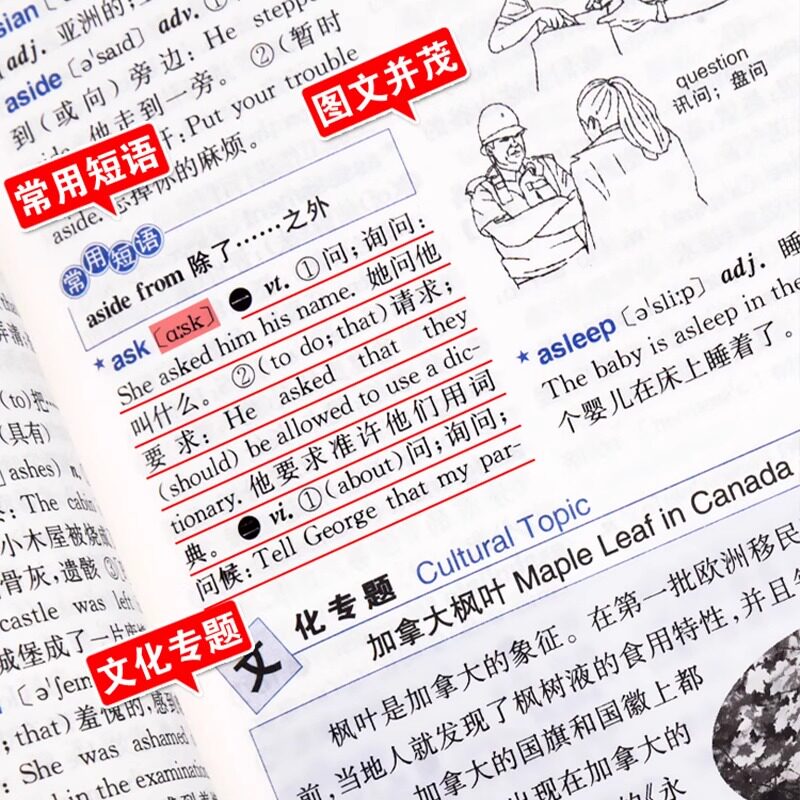 adj. 亚洲的;
aside [ə'saɪd] adv. ①
到(或向)旁边: He stepped
aside. 他走到一旁。 ②(暂时
Put your trouble
aside. 忘掉你的麻烦。
常用短语
图文并茂
常用短语
aside from 除了……之外
ask [ɑːsk] 一 vt. ①问;询问:
She asked him his name. 她问他
叫什么。 ②(to do; that)请求;
要求: He asked that they
(should) be allowed to use a dic-
tionary. 他要求准许他们用词
典。 二 vi. ①(about)问;询问;
问候: Tell George that my par-
question
讯问;盘问
asleep [ə'sliːp] adj. 睡
The baby is asleep in the
个婴儿在床上睡着了。
文化专题
文化专题 Cultural Topic
加拿大枫叶 Maple Leaf in Canada
枫叶是加拿大的象征。在第一批欧洲移民
前,当地人就发现了枫树液的食用特性,并且
加拿大的国旗和国徽上都
出现在加拿大的
的《永
(to)把
(具有)
ashes) n.
The cabin
小木屋被烧成
骨灰,遗骸 ③
castle was left
城堡成了一片
that)羞愧的,感到
She was ashamed
in the examination